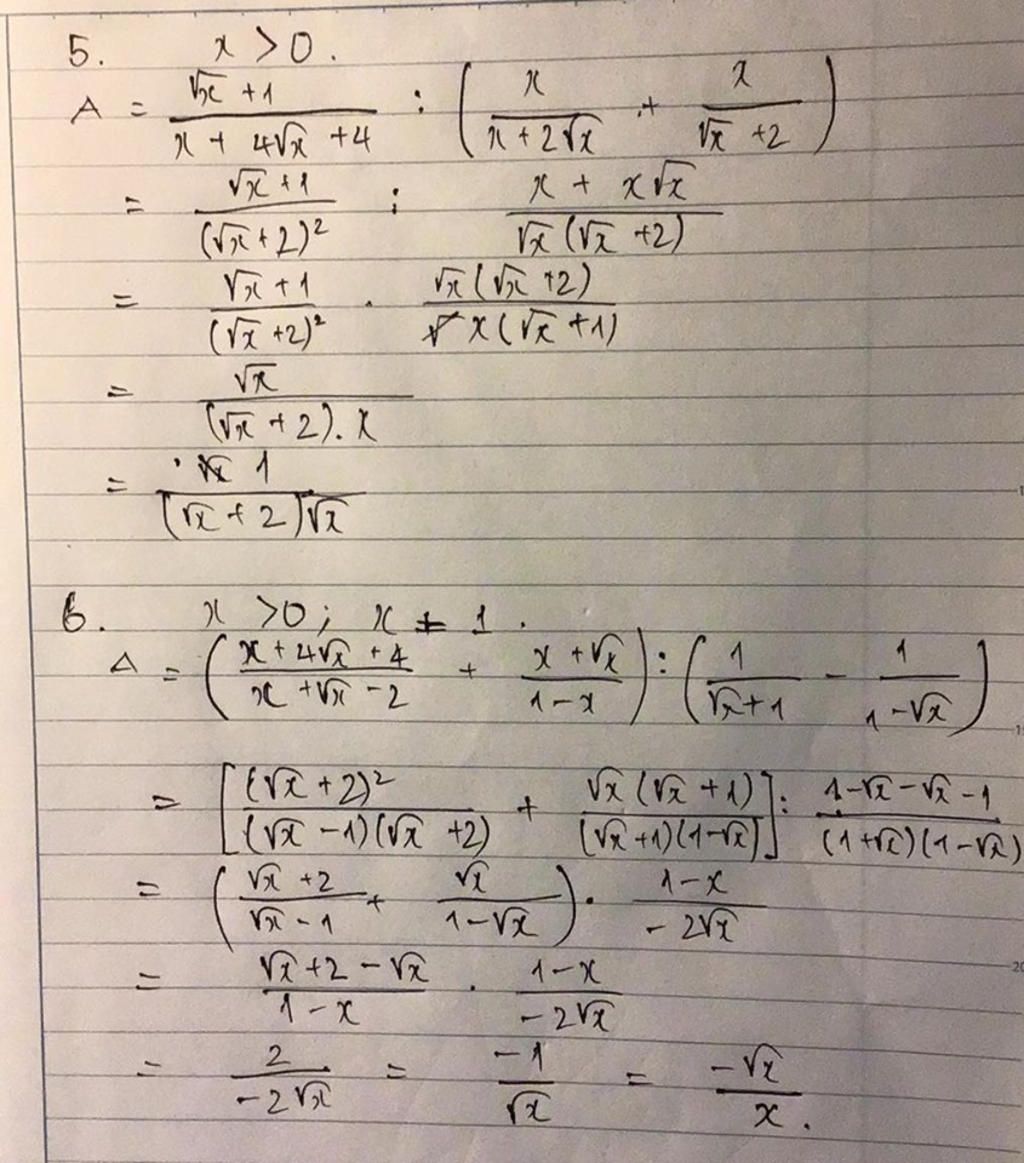 5. x > 0.
A = (√x + 1)/(x + 4√x + 4) : (x/(x + 2√x) + x/(√x + 2))
= (√x + 1)/(√x + 2)² : (x + x√x)/(√x(√x + 2))
= (√x + 1)/(√x + 2)² . (√x(√x + 2))/(x(√x + 1))
= √x/((√x + 2).x)
= 1/((√x + 2)√x)
6. x > 0; x ≠ 1.
A = ((x + 4√x + 4)/(x + √x - 2) + (x + √x)/(1 - x)) : (1/(√x + 1) - 1/(1 - √x))
= [(√x + 2)²/((√x - 1)(√x + 2)) + (√x(√x + 1))/((√x + 1)(1 - √x))] : (1 - √x - √x - 1)/((1 + √x)(1 - √x))
= ((√x + 2)/(√x - 1) + √x/(1 - √x)) . (1 - x)/(-2√x)
= (√x + 2 - √x)/(1 - x) . (1 - x)/(-2√x)
= 2/(-2√x) = -1/√x = -√x/x.